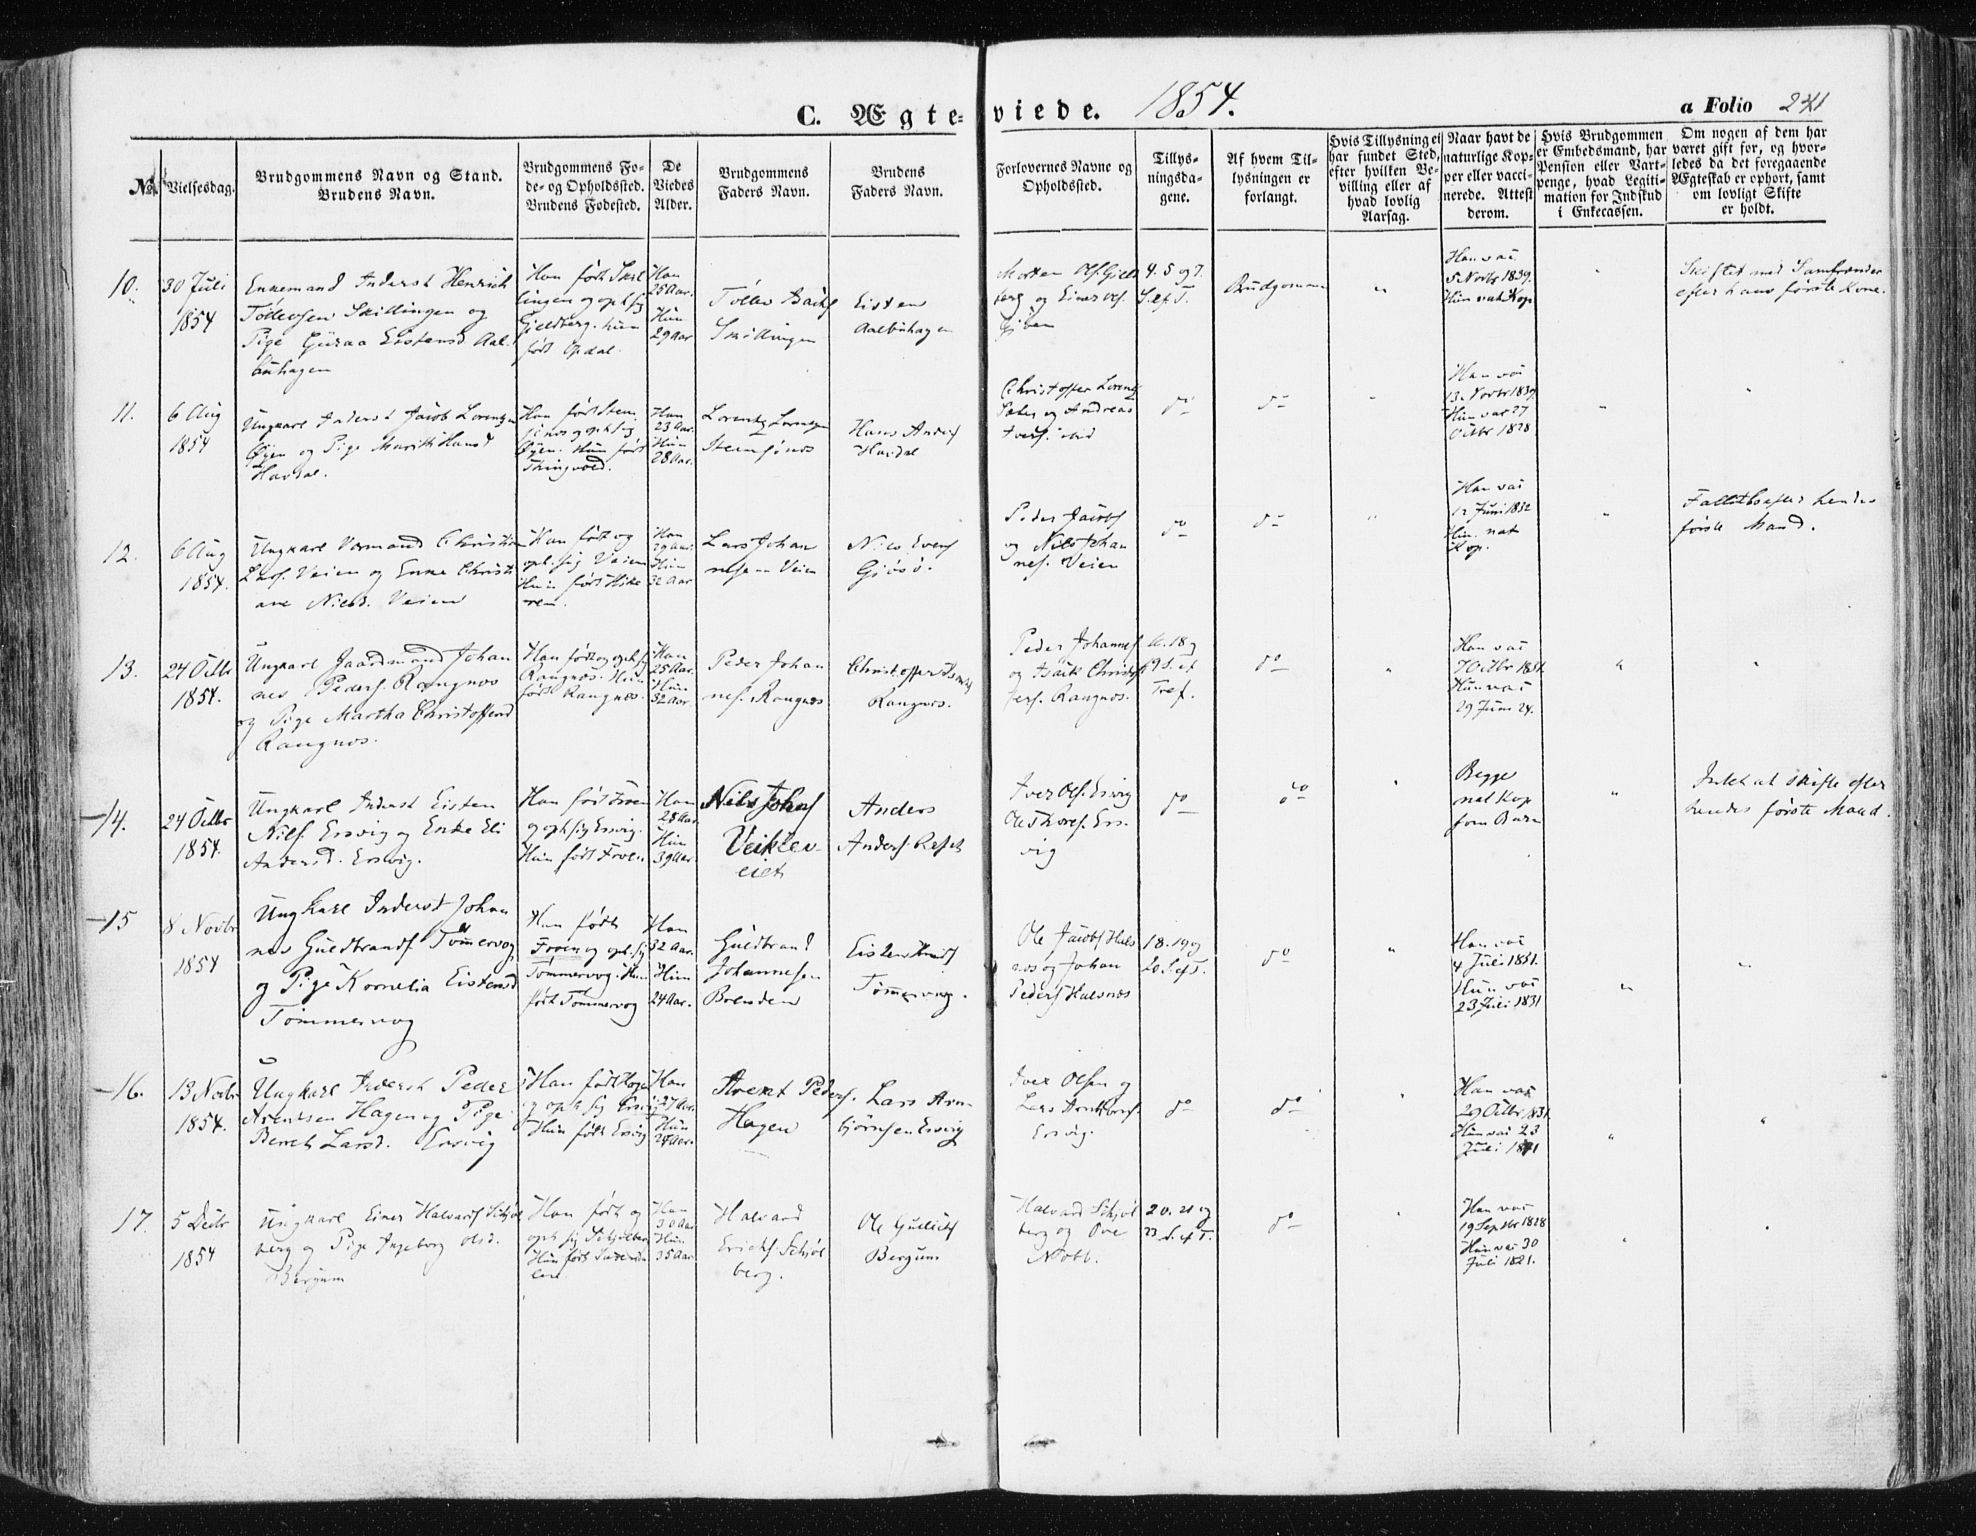 C. Ægteviede. 1854.
a Folio 241
No.
Vielsesdag.
Brudgommens Navn og Stand.
Brudens Navn.
Brudgommens Fo-
de- og Opholdssted.
Brudens Fodested.
De
Viedes
Alder.
Brudgommens
Faders Navn.
Brudens
Faders Navn.
Forlovernes Navne og
Opholdssted.
Tillys-
ningsda-
gene.
Af hvem Til-
lysningen er
forlangt.
Hvis Tillysning ei
har fundet Sted,
efter hvilken Be-
villing eller af
hvad lovlig
Aarsag.
Naar havt de
naturlige Kop-
per eller vacci-
nerede. Attest
derom.
Hvis Brudgommen
er Embedsmand, har
Pension eller Vart-
penge, hvad Legiti-
mation for Indskud
i Enkecassen.
Om nogen af dem har
været gift for, og hvor-
ledes da det foregaaende
Ægteskab er ophort, samt
om lovligt Skifte
er holdt.
10.
30 Juli
1854
Enkemand Anderst Henrich
Tøllevsen Skillingen og
Pige Guraa Eistensd Aal-
buhagen
Han født Skil
lingen og oph sig
Gjeldberg. hun
født Opdal.
Han
25 Aar.
Hun
29 Aar
Skillingen
Eisten
Aalbuhagen
Morten Ols. Gjeld
berg og Einer Ols.
4. 5 og 7.
S. ef. T.
Brudgommen
"
Han vac
5 Novbr 1839.
Hun nat Kop
"
Skiftet med Samfrænder
efter hans første Kone.
11.
6 Aug
1854
Ungkarl Anderst Jacob Lorentzen
Øyen og Pige Marith Hansd
Havdal.
Han født Stem
oph sig
Øyen. Hun født
Thingvold.
Han
23 Aar.
Hun
28 Aar.
Lorentz Lorentzen
Hans Anders
Havdal
Christoffer Lorentz
og Andreas
ibid
do
do
"
Han vac
13 Novbr 1839.
Hun vac 27
Octbr 1828
"
"
12.
6 Aug
1854.
Ungkarl Normand Christian
Lars. Veien og Enke Christi
ane Nilsd. Veien
Han født og
oph. sig Veien
Hun født
Han
29 Aar.
Hun
32 Aar
Lars Johan
nesen Veien
Nils Evers
Peder Jacobs
og Nils Johan
nes. Veien
do
do
"
Han vac
12 Juni 1832
Hun nat
Kop.
"
efter hendes
første Mand.
13.
24 Octbr
1854.
Ungkarl Gaardmand Johan
nes Peders. Rangnæs
og Pige Martha Christoffersd
Rangnæs.
Han født og oph sig
Rangnæs. Hun
født Rangnæs.
Han
25 Aar.
Hun
32 Aar
Peder Johan
nes. Rangnæs
Christoffer
Rangnæs.
Peder Johannes
og Isaak Christof
fers. Rangnæs.
18 og
19 S. ef
Tref.
do
"
Han vac
7 Octbr 1831.
Hun vac
29 Juni 24.
"
"
14.
24 Octbr
1854.
Ungkarl Anderst Eisten
Nils. Ersvig og Enke Eli
Andersd. Ersvig.
Han født Froen
og oph sig Ersvig.
Hun født Froen
Han
28 Aar.
Hun
39 Aar
Nils Johns
Anders
Anders. Reset
Iver Ols. Ersvig
Ole Thores. Ers-
vig
do
do
"
Begge
nat Kop
som Barn
"
Intet at skifte efter
hendes første Mand.
15
8 Novbr
1854
Ungkarl Anderst Johan
nes Guldbrands Tømmervog
og Pige Kornelia Eistensd
Tømmervog
Han født
Froen og oph. sig
Tømmervog. Hun
født Tømmervog
Han
32 Aar.
Hun
24 Aar.
Guldbrand
Johannesen
Brenden
Eisten
Tømmervog.
Ole Jacobs Hals
næs og Johan
Peders Halsnæs
18. 19 og
20. S. ef T.
do
"
Han vac
4 Juli 1851.
Hun vac
23 Juli 1831
"
"
16.
13 Novbr
1854.
Ungkarl Anderst Peder
Arentsen Hagen og Pige
Beret Larsd. Ersvig
Han født Hagen
og oph sig Ersvig
Hun født Ersvig
Han
27 Aar.
Hun
24 Aar.
Arent Peders.
Hagen
Lars Arn
bjørnsen Ersvig
Iver Olsen og
Lars
Ersvig.
do
do
"
Han vac
29 Octbr 1831.
Hun vac 23
Juli 1831
"
"
17.
5 Decbr
1854
Ungkarl Einer Halvards Schjøl
berg og Pige Ingeborg Olsd.
Bergum
Han født og
oph sig Schjølberg
Hun født Surendal
len
Han
30 Aar
Hun
35 Aar
Halvard
Erichs. Schjøl
berg.
Ole Gullichs
Bergum
Halvard Schjøl
berg og Ove
20. 21 og
23 S. ef T.
do
Han vac
19 Septbr 1828
Hun vac 30
Juli 1821.
"
"